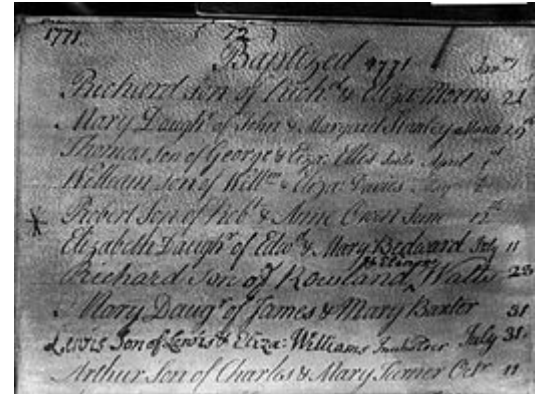 1771. (72)
Baptized 1771 Janry
Richard Son of Richd & Eliza: Morris 21st
Mary Daughr of John & Margaret March 29th
Thomas Son of George & Eliza: Ellis April
William Son of Willm & Eliza: Davies May
Robert Son of Robt & Anne Owen June 12th
Elizabeth Daughr of Edwd & Mary Bedward July 11
& Eleanor
Richard Son of Rowland Watts 28
Mary Daugr of James & Mary Baxter 31
Lewis Son of Lewis & Eliza: Williams July 31.
Arthur Son of Charles & Mary Octr 11